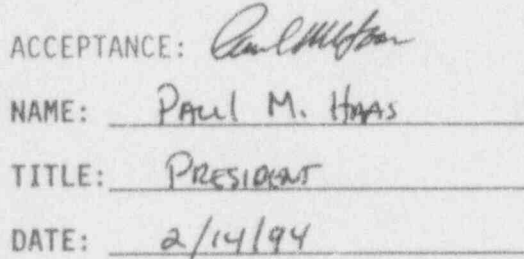 ACCEPTANCE:
NAME: Paul M. Haas
TITLE: President
DATE: 2/14/94